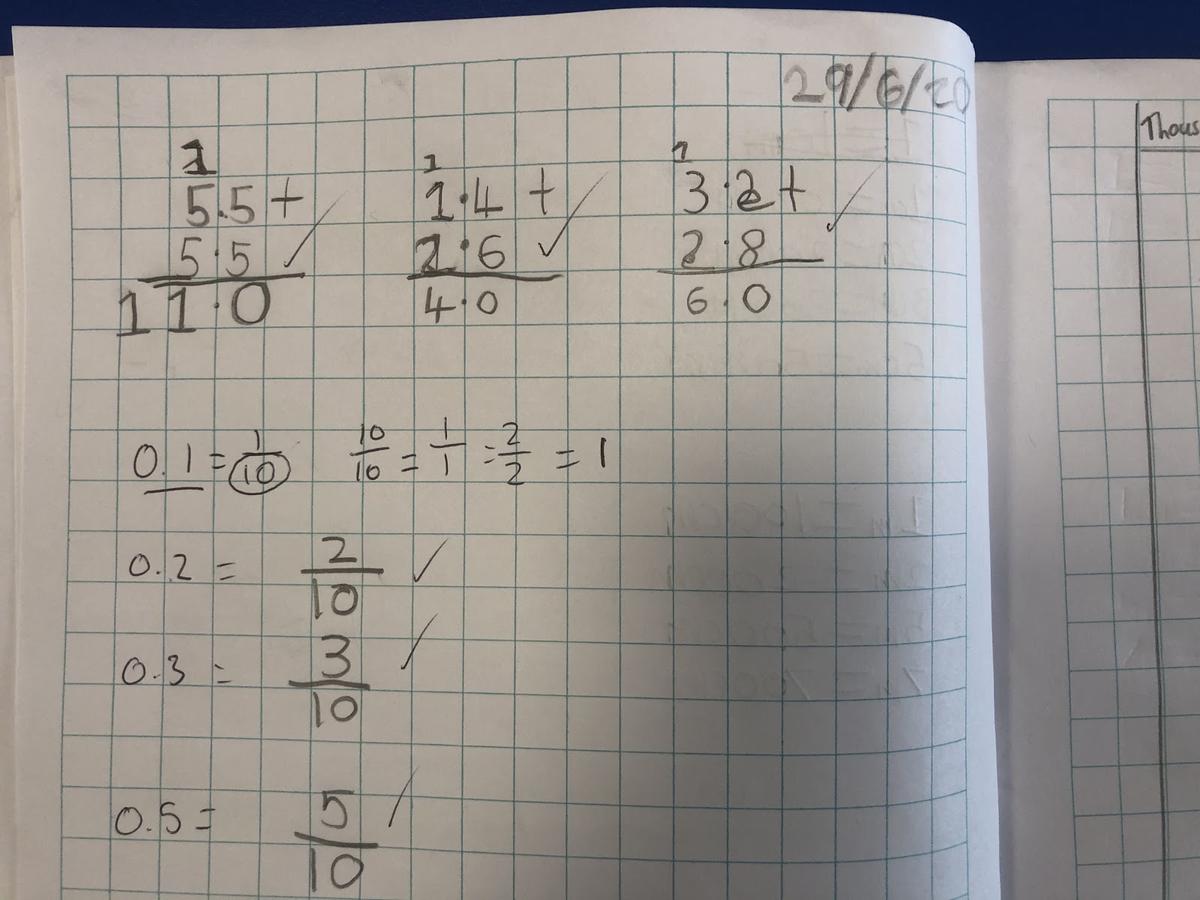 29/6/20
1 1 1
5.5 + 1.4 + 3.2 +
5.5 2.6 2.8
11.0 4.0 6.0
0.1 = 1/10 10/10 = 1/1 = 2/2 = 1
0.2 = 2/10
0.3 = 3/10
0.5 = 5/10
Thous